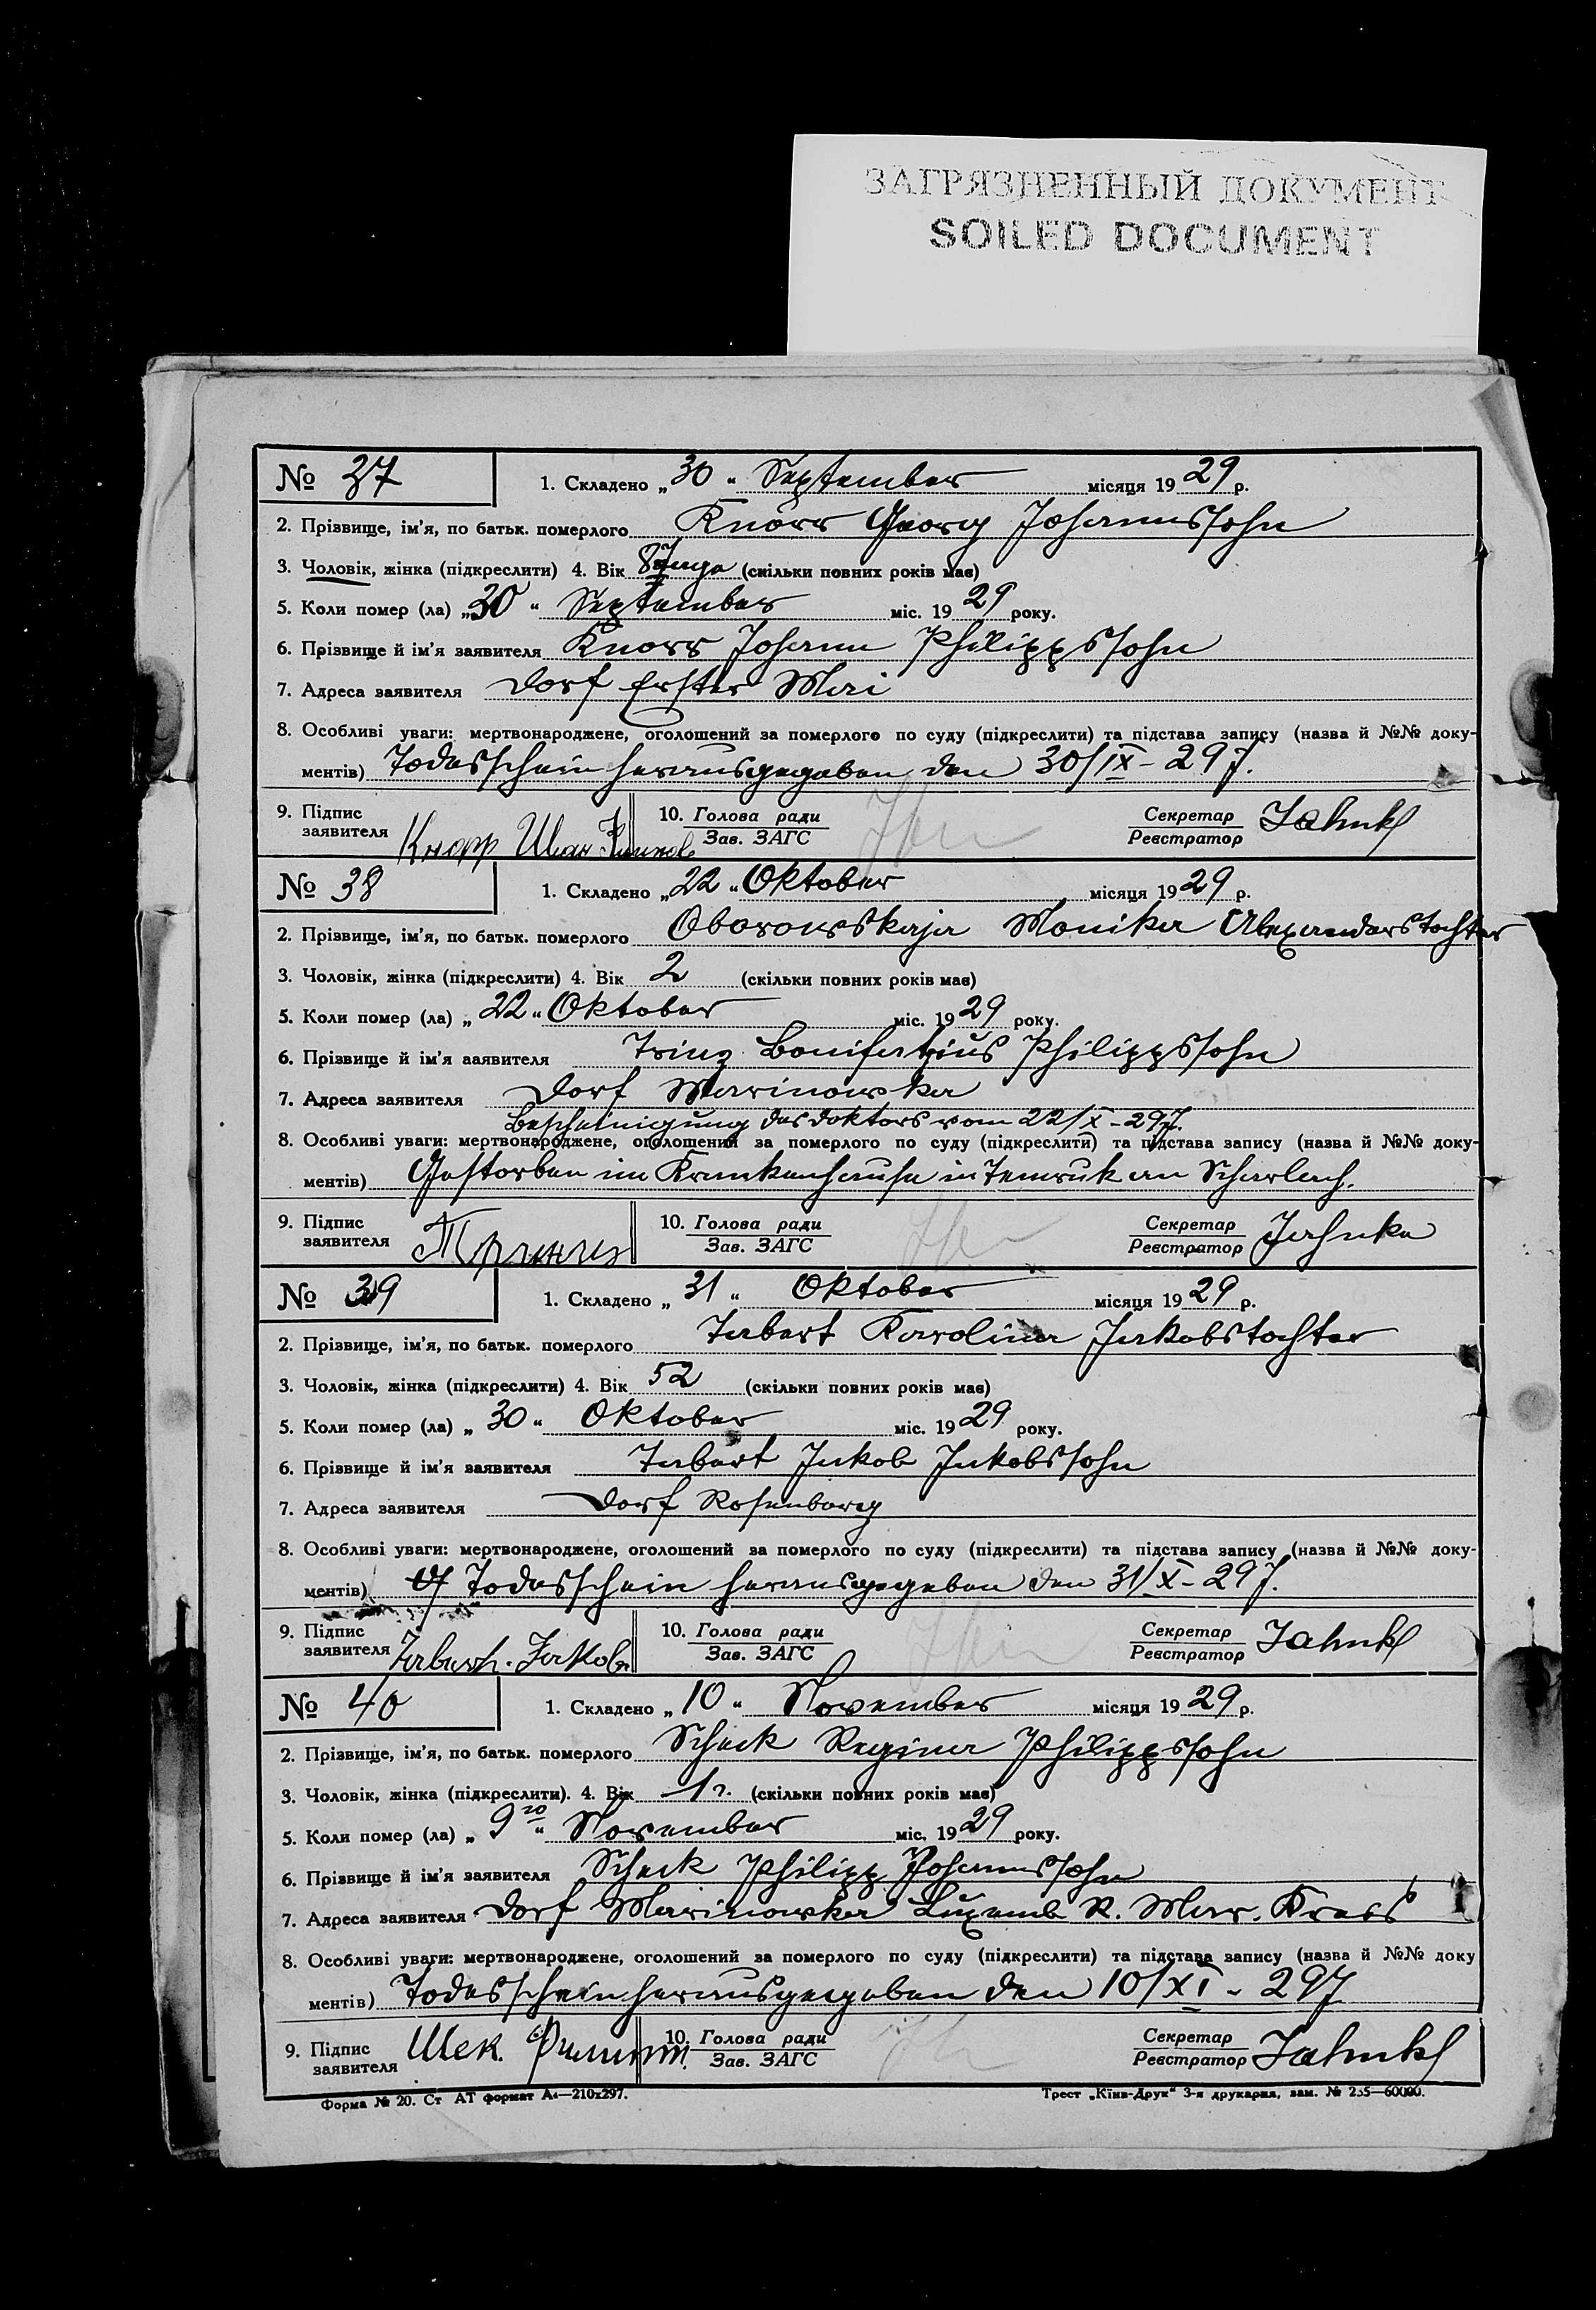 ЗАГРЯЗНЕННЫЙ ДОКУМЕНТ
SOILED DOCUMENT
№ 37 1. Складено „30“ September місяця 1929 р.
2. Прізвище, ім’я, по батьк. померлого Knorr Georg Johannssohn
3. Чоловік, жінка (підкреслити) 4. Вік (скільки повних років має)
5. Коли помер (ла) „30“ September міс. 1929 року.
6. Прізвище й ім’я заявителя Knorr Johann Philippssohn
7. Адреса заявителя Dorf Erster Mai
8. Особливі уваги: мертвонароджене, оголошений за померлого по суду (підкреслити) та підстава запису (назва й №№ доку-
ментів) Todesschein herausgegeben den 30/IX-29 J.
9. Підпис заявителя Кнорр Иван 10. Голова ради Зав. ЗАГС Секретар Реєстратор Jahnke
№ 38 1. Складено „22“ Oktober місяця 1929 р.
2. Прізвище, ім’я, по батьк. померлого Oborowskaja Monika Alexanderstochter
3. Чоловік, жінка (підкреслити) 4. Вік 2 (скільки повних років має)
5. Коли помер (ла) „22“ Oktober міс. 1929 року.
6. Прізвище й ім’я заявителя Trinz Bonifatzius Philippssohn
7. Адреса заявителя Dorf Marinowka
Bescheinigung des doktors vom 22/X-29 J.
8. Особливі уваги: мертвонароджене, оголошений за померлого по суду (підкреслити) та підстава запису (назва й №№ доку-
ментів) Gestorben im Krankenhause in Temruk an Scharlach.
9. Підпис заявителя 10. Голова ради Зав. ЗАГС Секретар Реєстратор Jahnke
№ 39 1. Складено „31“ Oktober місяця 1929 р.
2. Прізвище, ім’я, по батьк. померлого Tabert Karolina Jakobstochter
3. Чоловік, жінка (підкреслити) 4. Вік 52 (скільки повних років має)
5. Коли помер (ла) „30“ Oktober міс. 1929 року.
6. Прізвище й ім’я заявителя Tabert Jakob Jakobssohn
7. Адреса заявителя Dorf Rosenberg
8. Особливі уваги: мертвонароджене, оголошений за померлого по суду (підкреслити) та підстава запису (назва й №№ доку-
ментів) Todesschein herausgegeben den 31/X-29 J.
9. Підпис заявителя 10. Голова ради Зав. ЗАГС Секретар Реєстратор Jahnke
№ 40 1. Складено „10“ November місяця 1929 р.
2. Прізвище, ім’я, по батьк. померлого Scheck Regina Philippssohn
3. Чоловік, жінка (підкреслити). 4. Вік 1 г. (скільки повних років має)
5. Коли помер (ла) „9го“ November міс. 1929 року.
6. Прізвище й ім’я заявителя Scheck Philipp Johannssohn
7. Адреса заявителя Dorf Marinowka Luxemb R. Mar. Kreis
8. Особливі уваги: мертвонароджене, оголошений за померлого по суду (підкреслити) та підстава запису (назва й №№ доку
ментів) Todesschein herausgegeben den 10/XI-29 J
9. Підпис заявителя Шек. Филипп. 10. Голова ради Зав. ЗАГС Секретар Реєстратор Jahnke
Форма № 20. Ст АТ формат А4—210х297. Трест „Київ-Друк“ 3-я друкарня, зам. № 235—60000.